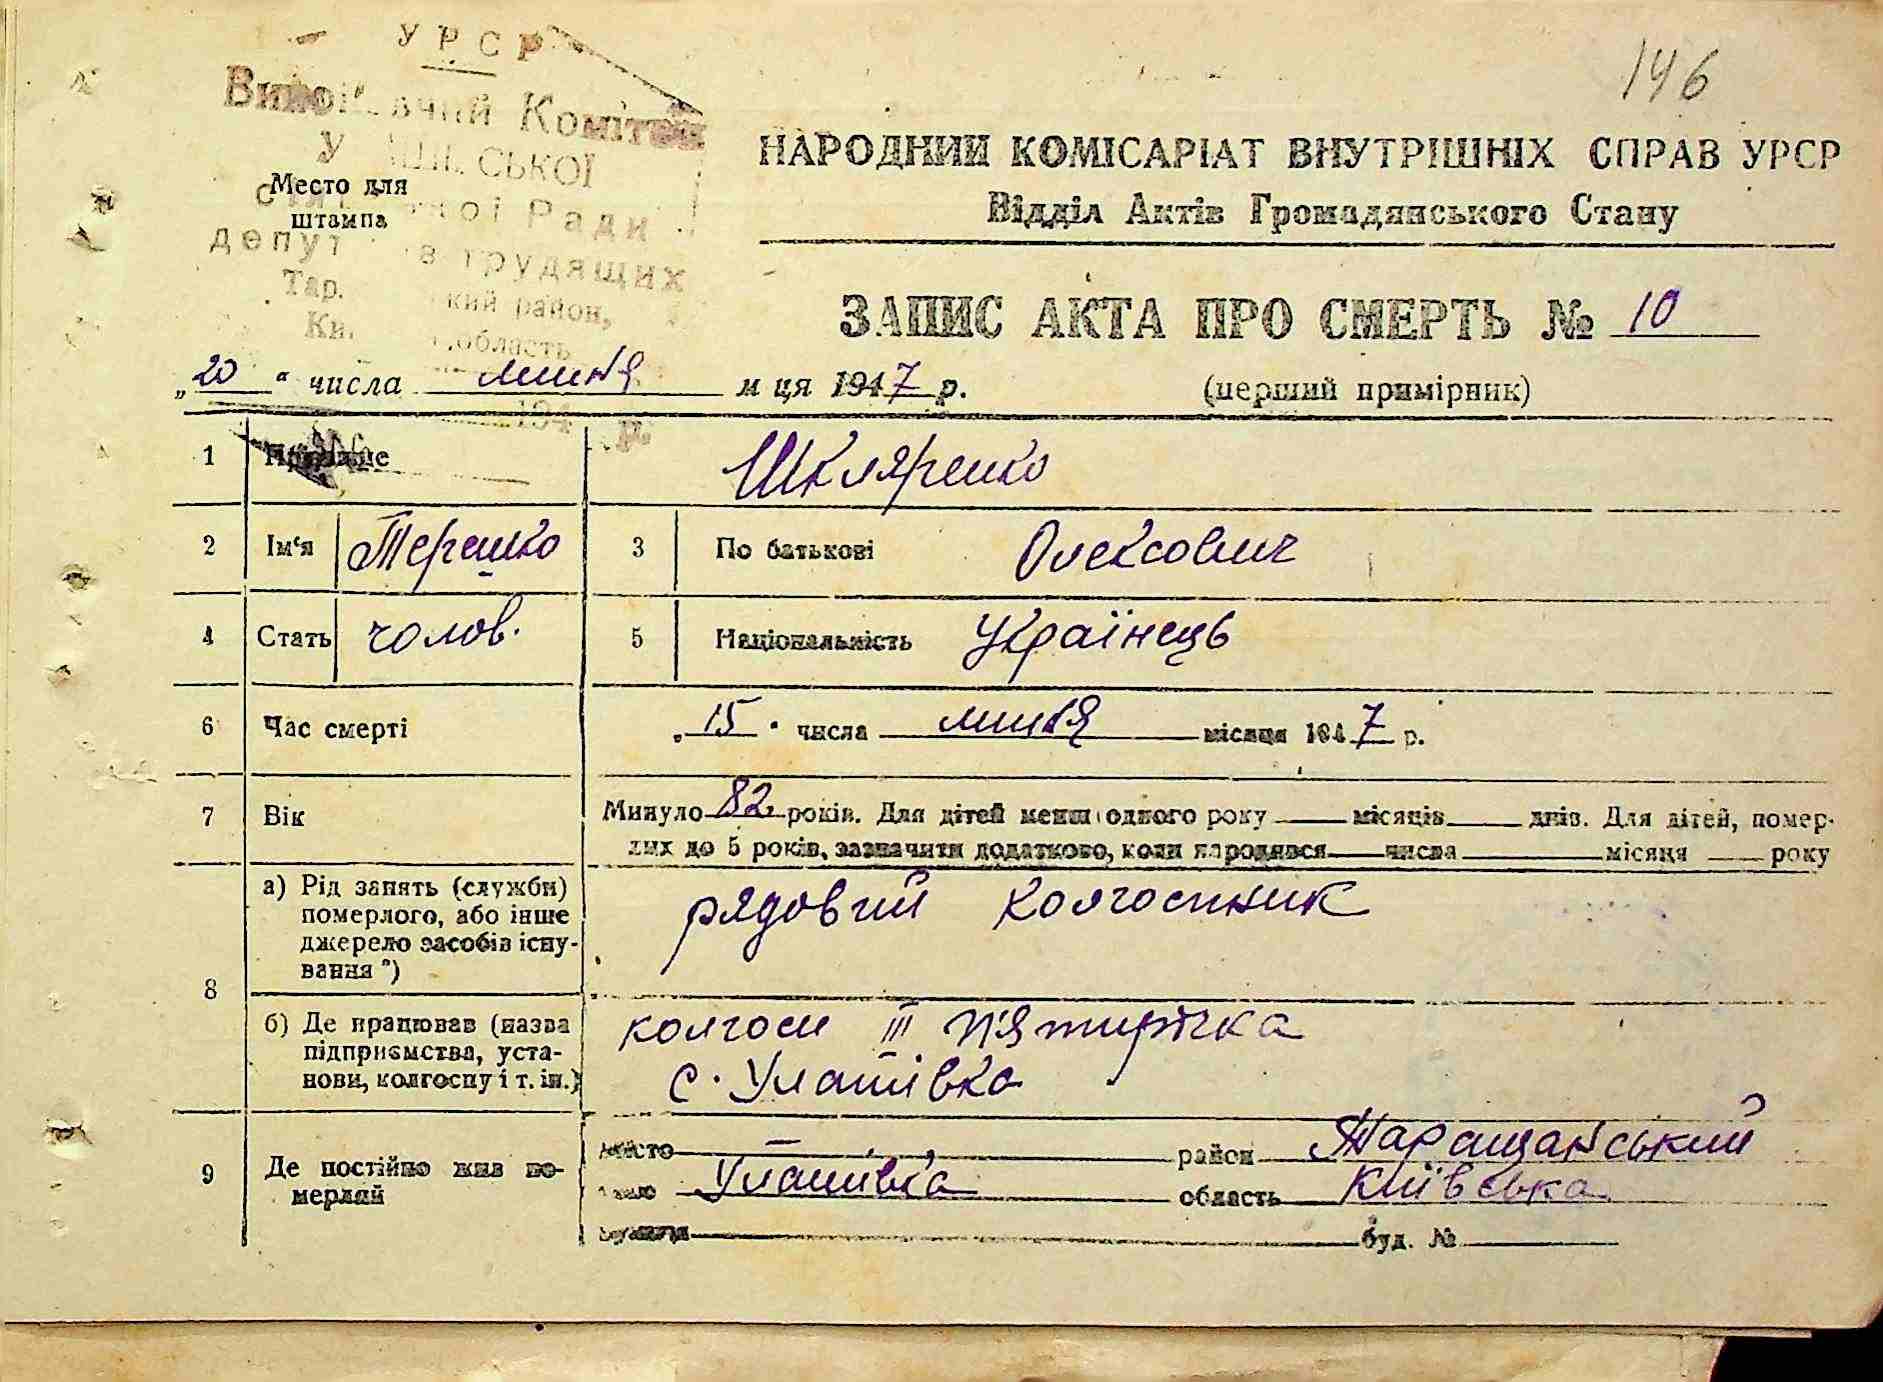 146
УРСР
Виконавчий Комітет
У ської
Ради
депут в трудящих
Тар. кий район,
Ки. область
194 р.
Место для
штампа
НАРОДНИЙ КОМІСАРІАТ ВНУТРІШНІХ СПРАВ УРСР
Відділ Актів Громадянського Стану
ЗАПИС АКТА ПРО СМЕРТЬ № 10
„20“ числа липня м ця 1947 р. (перший примірник)
1 Прізвище Шкляренко
2 Ім‘я Терешко 3 По батькові Олексович
4 Стать чолов. 5 Національність Українець
6 Час смерті „15“ числа липня місяця 1947 р.
7 Вік Минуло 82 років. Для дітей менш одного року місяців днів. Для дітей, помер-
лих до 5 років, зазначити додатково, коли народився числа місяця року
8 а) Рід занять (служби)
померлого, або інше
джерело засобів існу-
вання *)
рядовий колгоспник
б) Де працював (назва
підприємства, уста-
нови, колгоспу і т. ін.)
колгосп III п'ятирічка
с. Улашівка
9 Де постійно жив по-
мерлий
місто — район Таращанський
село Улашівка область Київська
вулиця буд. №